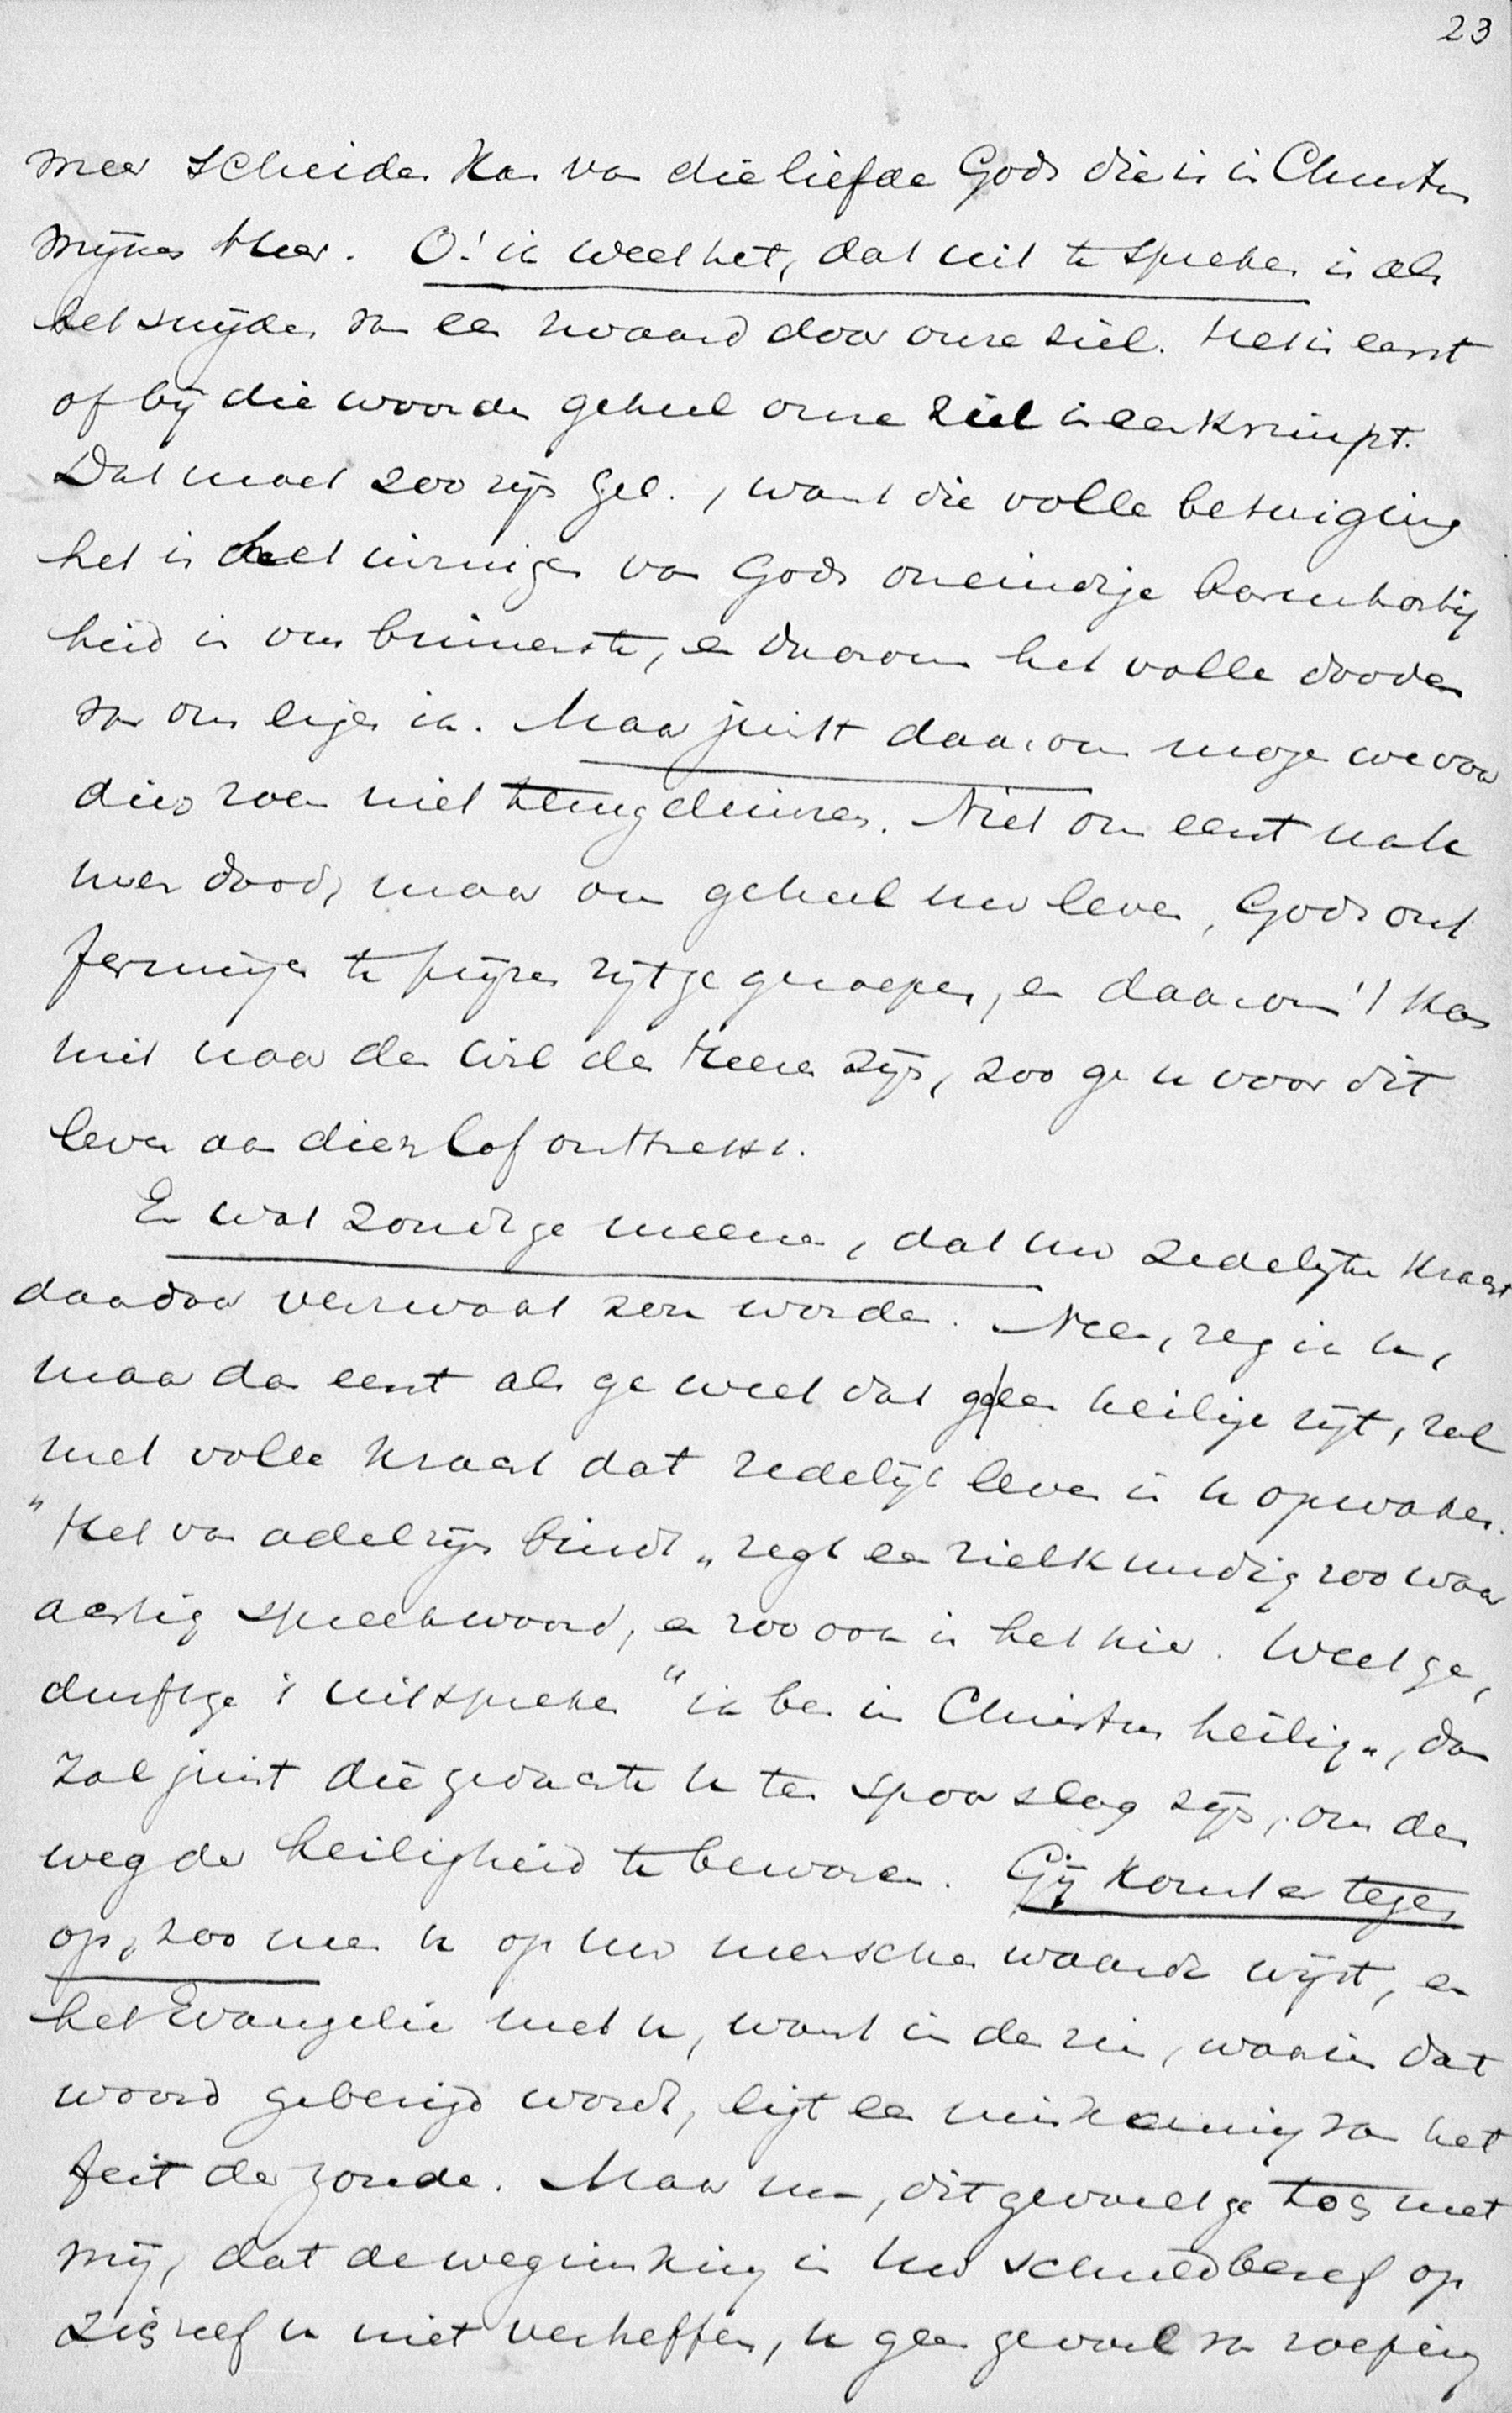 23
meer scheiden kan van die liefde Gods die is in Christus
mijnen Heer. O! ik weet het, dat uit te spreken is als
het snijden van een zwaard door onze ziel. Het is eerst
of bij die woorden geheel onze ziel ineenkrimpt.
Dat moet zoo zijn gel., want die volle betuiging
het is het van Gods oneindige barmhartig
heid in ons binnenste, en daarom het volle dooden
van ons eigen ik. Maar juist daarom moge we voor
dien zoen niet terugdeinzen. Niet om eerst na
uwen dood, maar om geheel uw leven, Gods ont
fermingen te prijzen zijt ge geroepen, en daarom 't kan
niet naar den wil des Heeren zijn, zoo ge u voor dit
leven aan dien lof onttrekt.
En wat zoudt ge meenen, dat uw zedelijke kracht
daardoor verzwakt zou worden. Neen, zeg ik u,
maar dan eerst als ge weet dat ge een heilige zijt, zal
met volle kracht dat zedelijk leven in u opwaken.
"Het van adel zijn bindt" zegt een zielkundig zoo waar
achtig spreekwoord, en zoo ook is het hier. Weet ge,
durft ge 't uitspreken "ik ben in Christus heilig", dan
zal juist die gedachte u ten spoorslag zijn, om den
weg der heiligheid te bewaren. Gij komt er tegen
op, zoo men u op uw menschenwaarde wijst, en
het Evangelie met u, want in den zin, waarin dat
woord gebezigd wordt, ligt een miskenning van het
feit der zonde. Maar nu, dit gevoelt ge toch met
mij, dat de wegzinking in uw schuldbesef op
zichzelf u niet verheffen, u geen gevoel van roeping